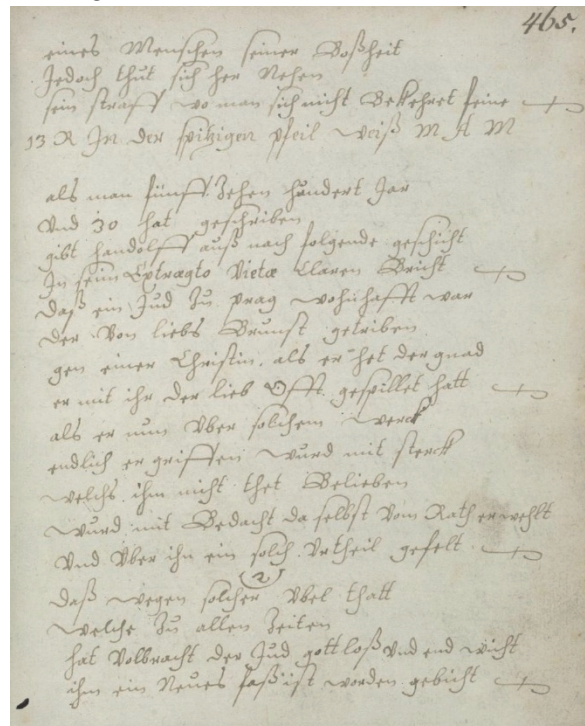 465.
eines Menschen seiner Boßheit
Jedoch thut sich her Nehen
sein straff wo man sich nicht Bekehret seine
13 R In der spitzigen pfeil weiß M A M
als man fünff Zehen hundert Jar
Vnd 30 hat geschriben
gibt handolff auß nach folgende geschicht
In seim Extragto Vietæ Claren Bricht
Daß ein Jud Zu prag wohnhafft war
der Von liebs Brunst getriben
gen einer Christin als er het der gnad
er mit ihr der lieb Offt gespillet hatt
als er nun Vber solchem werck
endlich er griffen wurd mit sterck
welchs ihm nicht thet Belieben
wurd mit Bedacht da selbst Vom Rath erwehlt
Vnd Vber ihn ein solch Vrtheil gefelt
2
Daß wegen solcher Vbel thatt
welche Zu allen Zeiten
hat Volbracht der Jud gottloß Vnd end wicht
ihm ein Neues faß ist worden gebicht